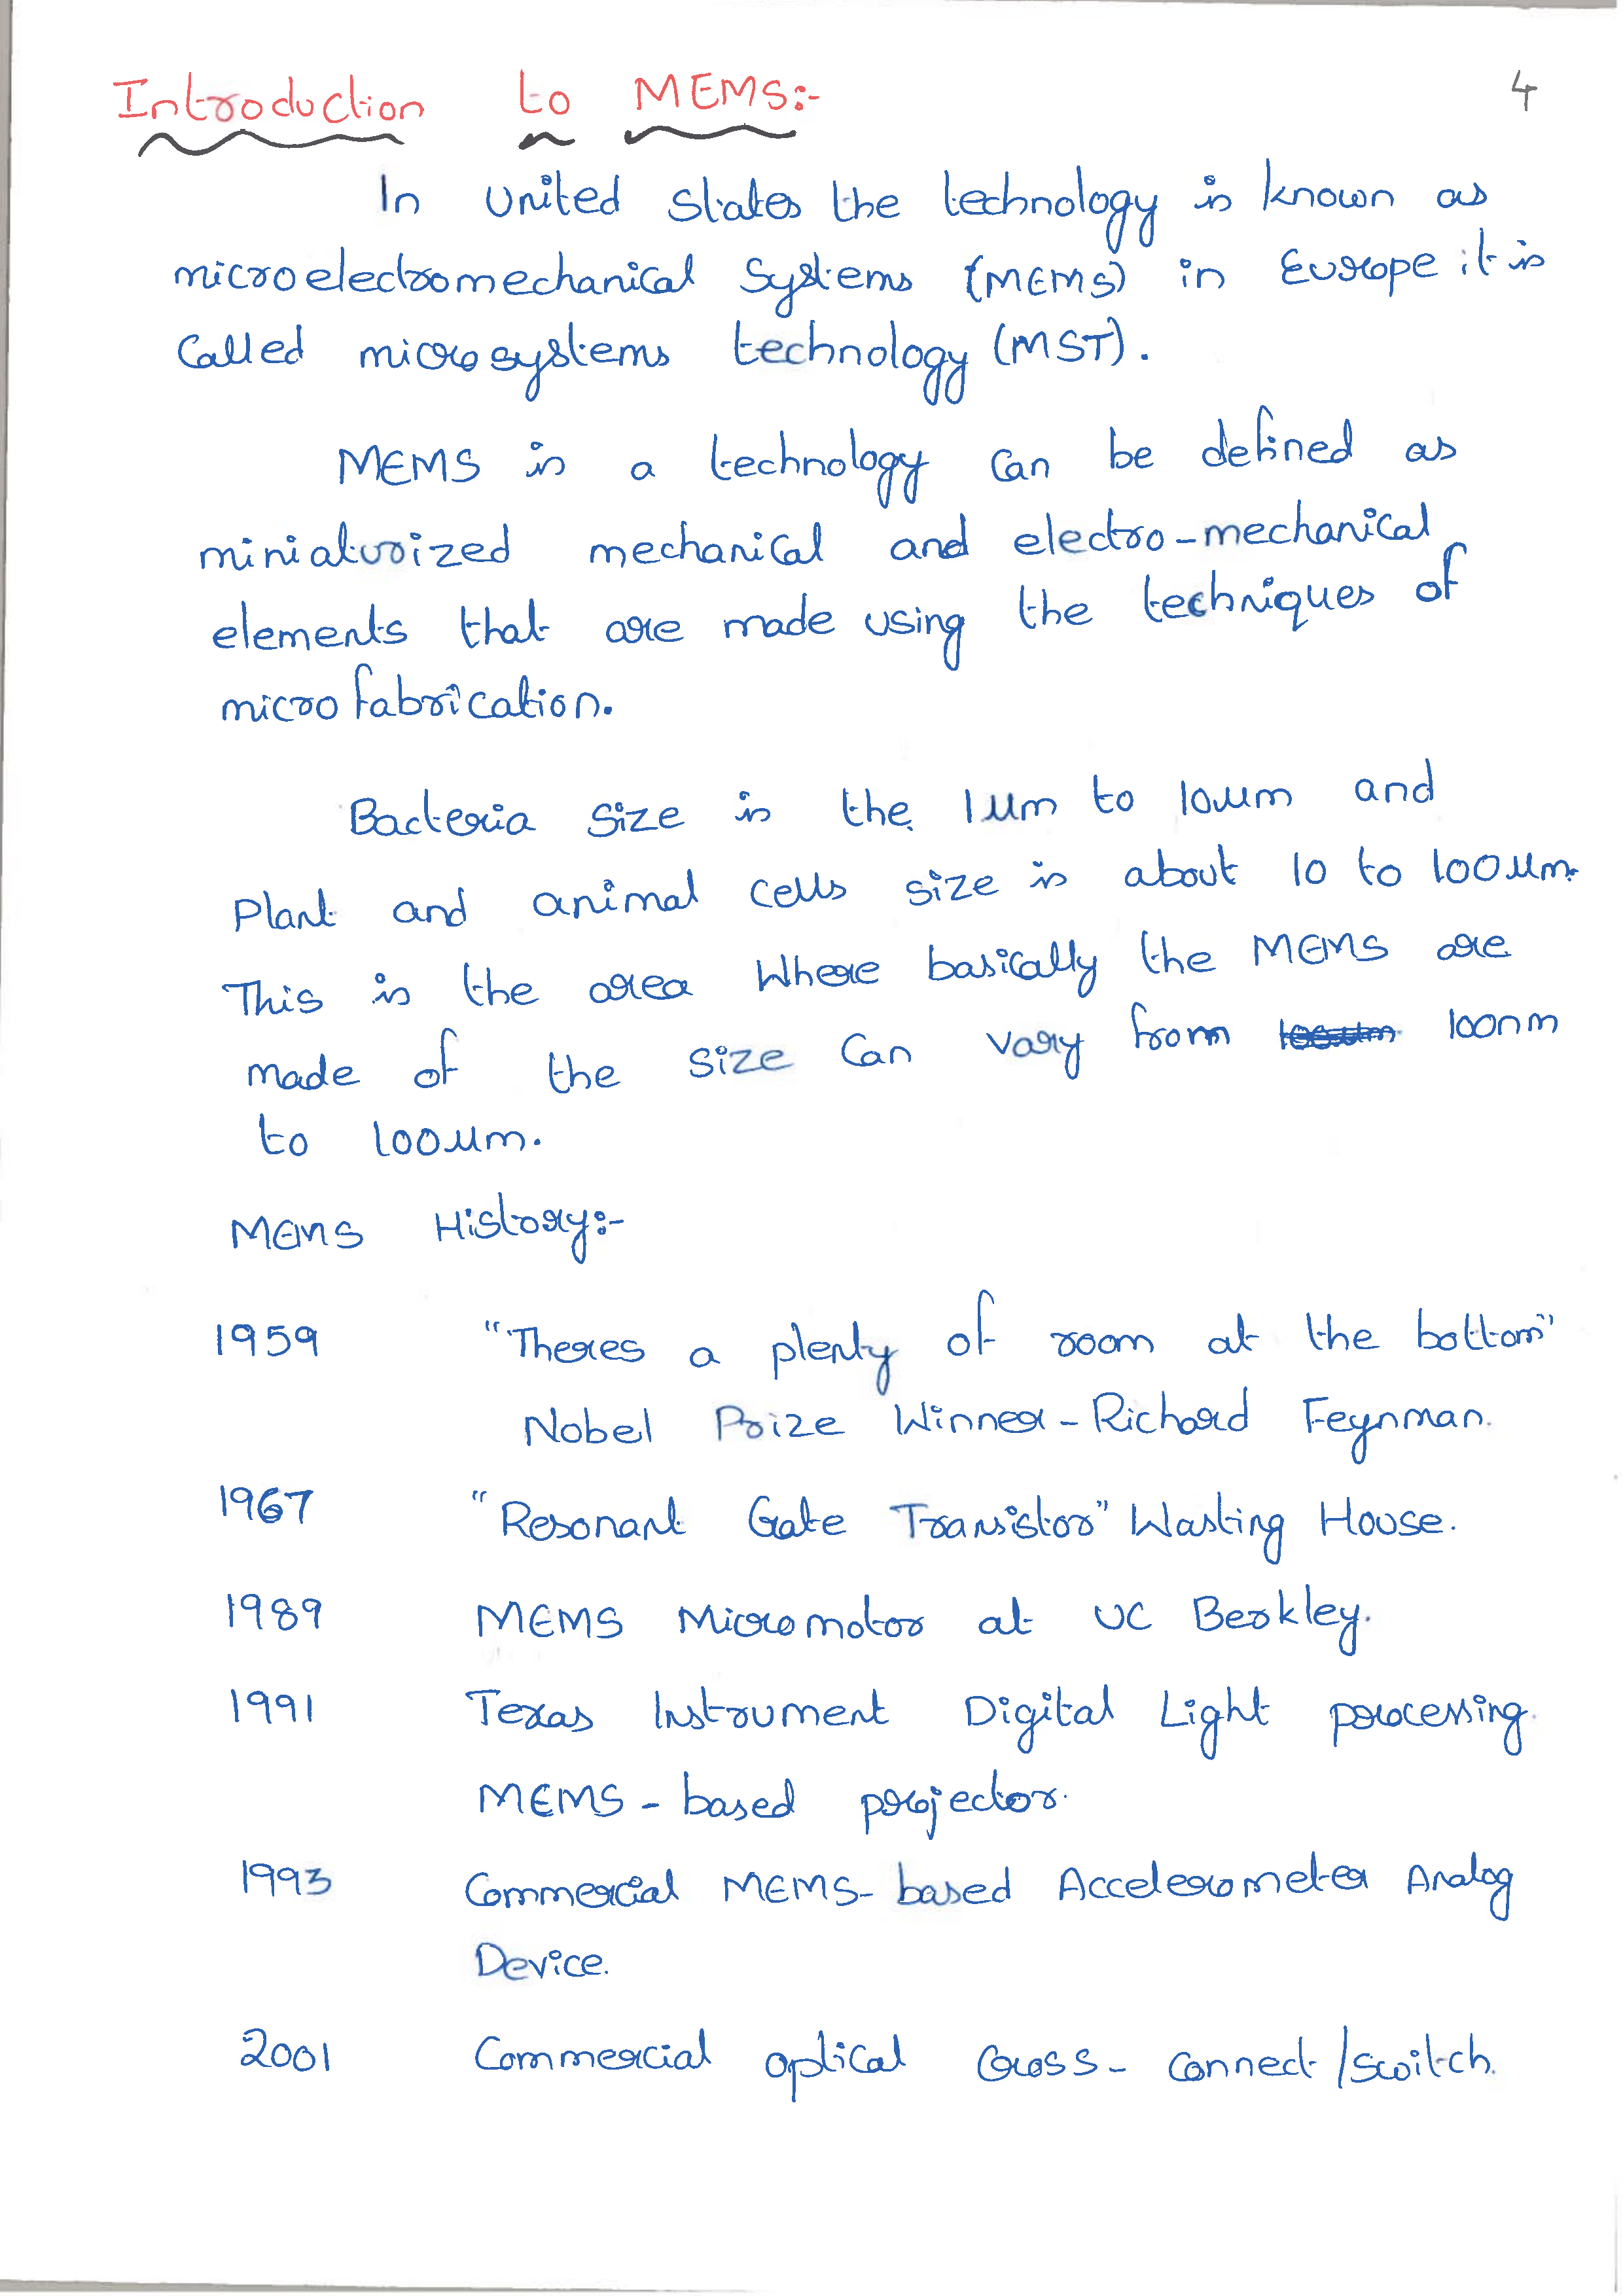 Introduction to MEMS:- 4
In United States the technology is known as
microelectromechanical Systems (MEMS) in Europe it is
Called microsystems technology (MST).
MEMS is a technology can be defined as
miniaturized mechanical and electro-mechanical
elements that are made using the techniques of
microfabrication.
Bacteria Size is the 1µm to 10µm and
Plant and animal cells size is about 10 to 100µm.
This is the area Where basically the MEMS are
made of the size Can vary from 100nm
to 100µm.
MEMS History:-
1959 "Theres a plenty of room at the bottom"
Nobel Prize Winner - Richard Feynman.
1967 "Resonant Gate Transistor" Wasting House.
1989 MEMS Micromotor at UC Berkley.
1991 Texas Instrument Digital Light processing
MEMS - based projector.
1993 Commercial MEMS-based Accelerometer Analog
Device.
2001 Commercial optical Cross-Connect/Switch.